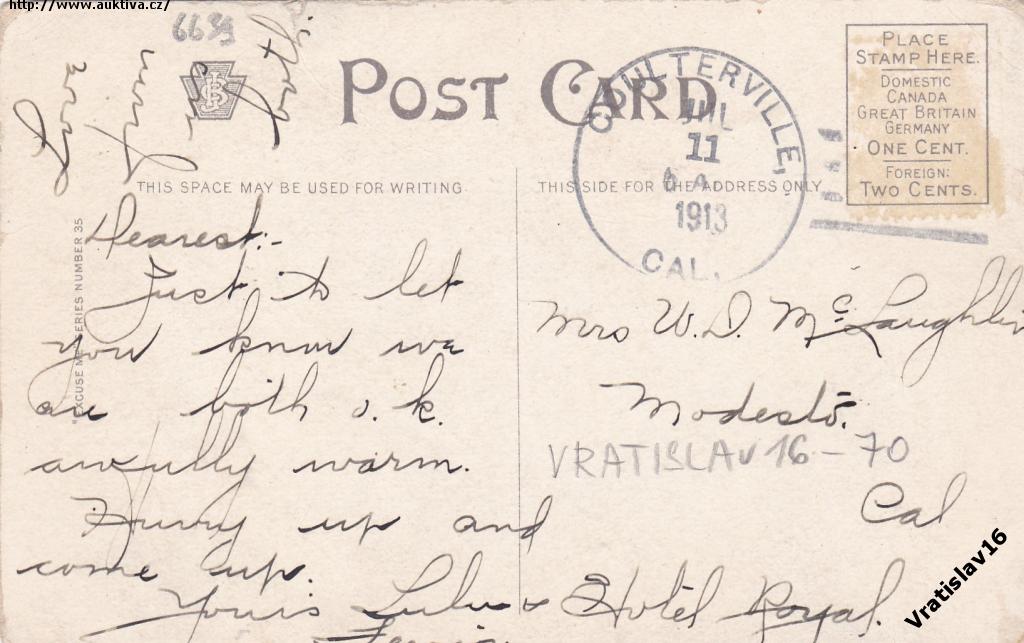 http://www.auktiva.cz/
6639
POST CARD
COULTERVILLE,
JUL
11
1913
CAL.
PLACE
STAMP HERE.
DOMESTIC
CANADA
GREAT BRITAIN
GERMANY
ONE CENT.
FOREIGN:
TWO CENTS.
THIS SPACE MAY BE USED FOR WRITING.
THIS SIDE FOR THE ADDRESS ONLY
"EXCUSE ME" SERIES NUMBER 35
Dearest:-
Just to let
you know we
are both o.k.
awfully warm.
Hurry up and
come up.
Yours Lulu &
Mrs W. D. McLaughlin
Modesto.
Cal
Hotel Royal.
VRATISLAV16-70
Vratislav16